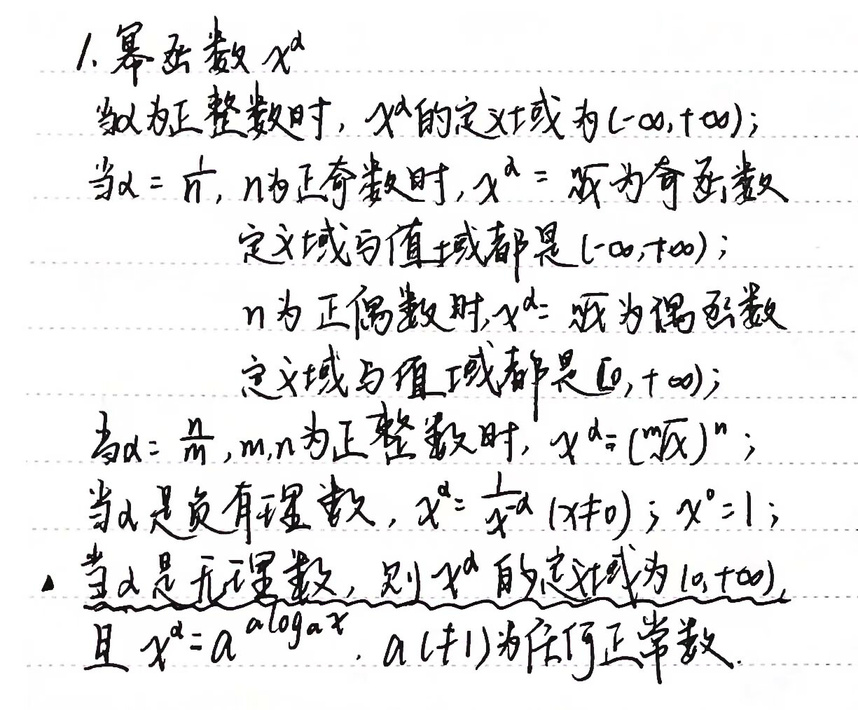 1. 幂函数 x^α
当α为正整数时, x^α的定义域为(-∞,+∞);
当α = 1/n, n为正奇数时, x^α = ⁿ√x为奇函数
定义域与值域都是(-∞,+∞);
n为正偶数时,x^α= ⁿ√x为偶函数
定义域与值域都是[0,+∞);
当α= n/m, m,n为正整数时, x^α=(ᵐ√x)^n;
当α是负有理数, x^α= 1/x^-α (x≠0); x^0=1;
▲当α是无理数, 则x^α的定义域为(0,+∞),
且 x^α=a^(αlog_a x). a(≠1)为任何正常数.